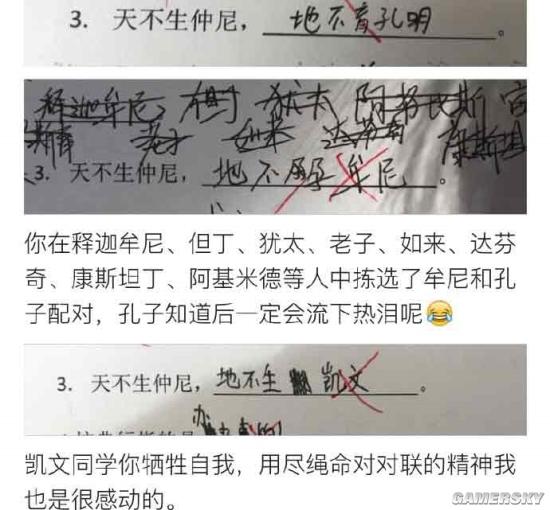 3. 天不生仲尼，地不育孔明。
释迦牟尼 但丁 犹太
老子 如来 达芬奇 康斯坦
3. 天不生仲尼，地不孕牟尼。
你在释迦牟尼、但丁、犹太、老子、如来、达芬
奇、康斯坦丁、阿基米德等人中拣选了牟尼和孔
子配对，孔子知道后一定会流下热泪呢😂
3. 天不生仲尼，地不生凯文。
凯文同学你牺牲自我，用尽绳命对对联的精神我
也是很感动的。
GAMERSKY